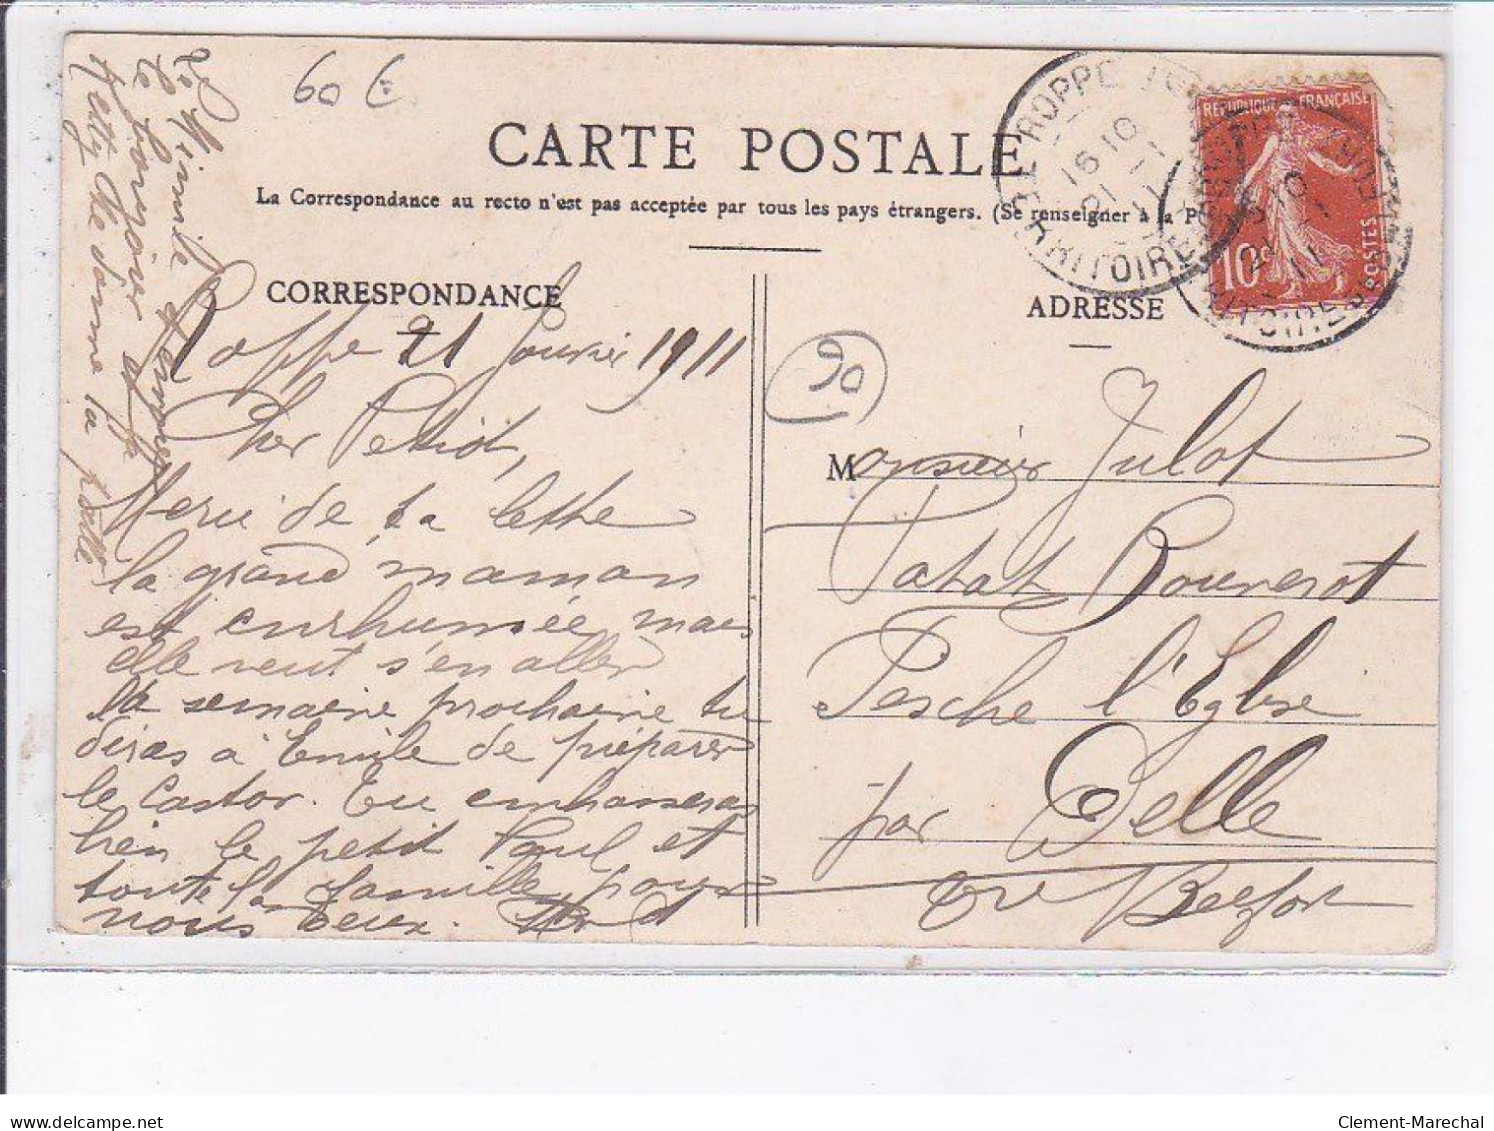 60 €
CARTE POSTALE
La Correspondance au recto n'est pas acceptée par tous les pays étrangers. (Se renseigner à la P
CORRESPONDANCE
ADRESSE
ROPPE
16 10
21 1
11
TERRITOIRE
REPUBLIQUE FRANÇAISE
10c
POSTES
10
21 1
11
Roppe 21 Janvier 1911
Cher Petiot,
Merci de ta lettre
la grand maman
est enrhumée, mais
elle veut s'en aller
la semaine prochaine tu
diras à Emile de préparer
le Castor. Tu embrasseras
bien le petit Paul et
toute la famille pour
nous deux.
Mimile
le bonsoir
Ketty te donne la patte
90
Monsieur Julot
Patat Bouverot
Pesche l'Eglise
par Delle
Tre Belfort
delcampe.net
Clement-Marechal